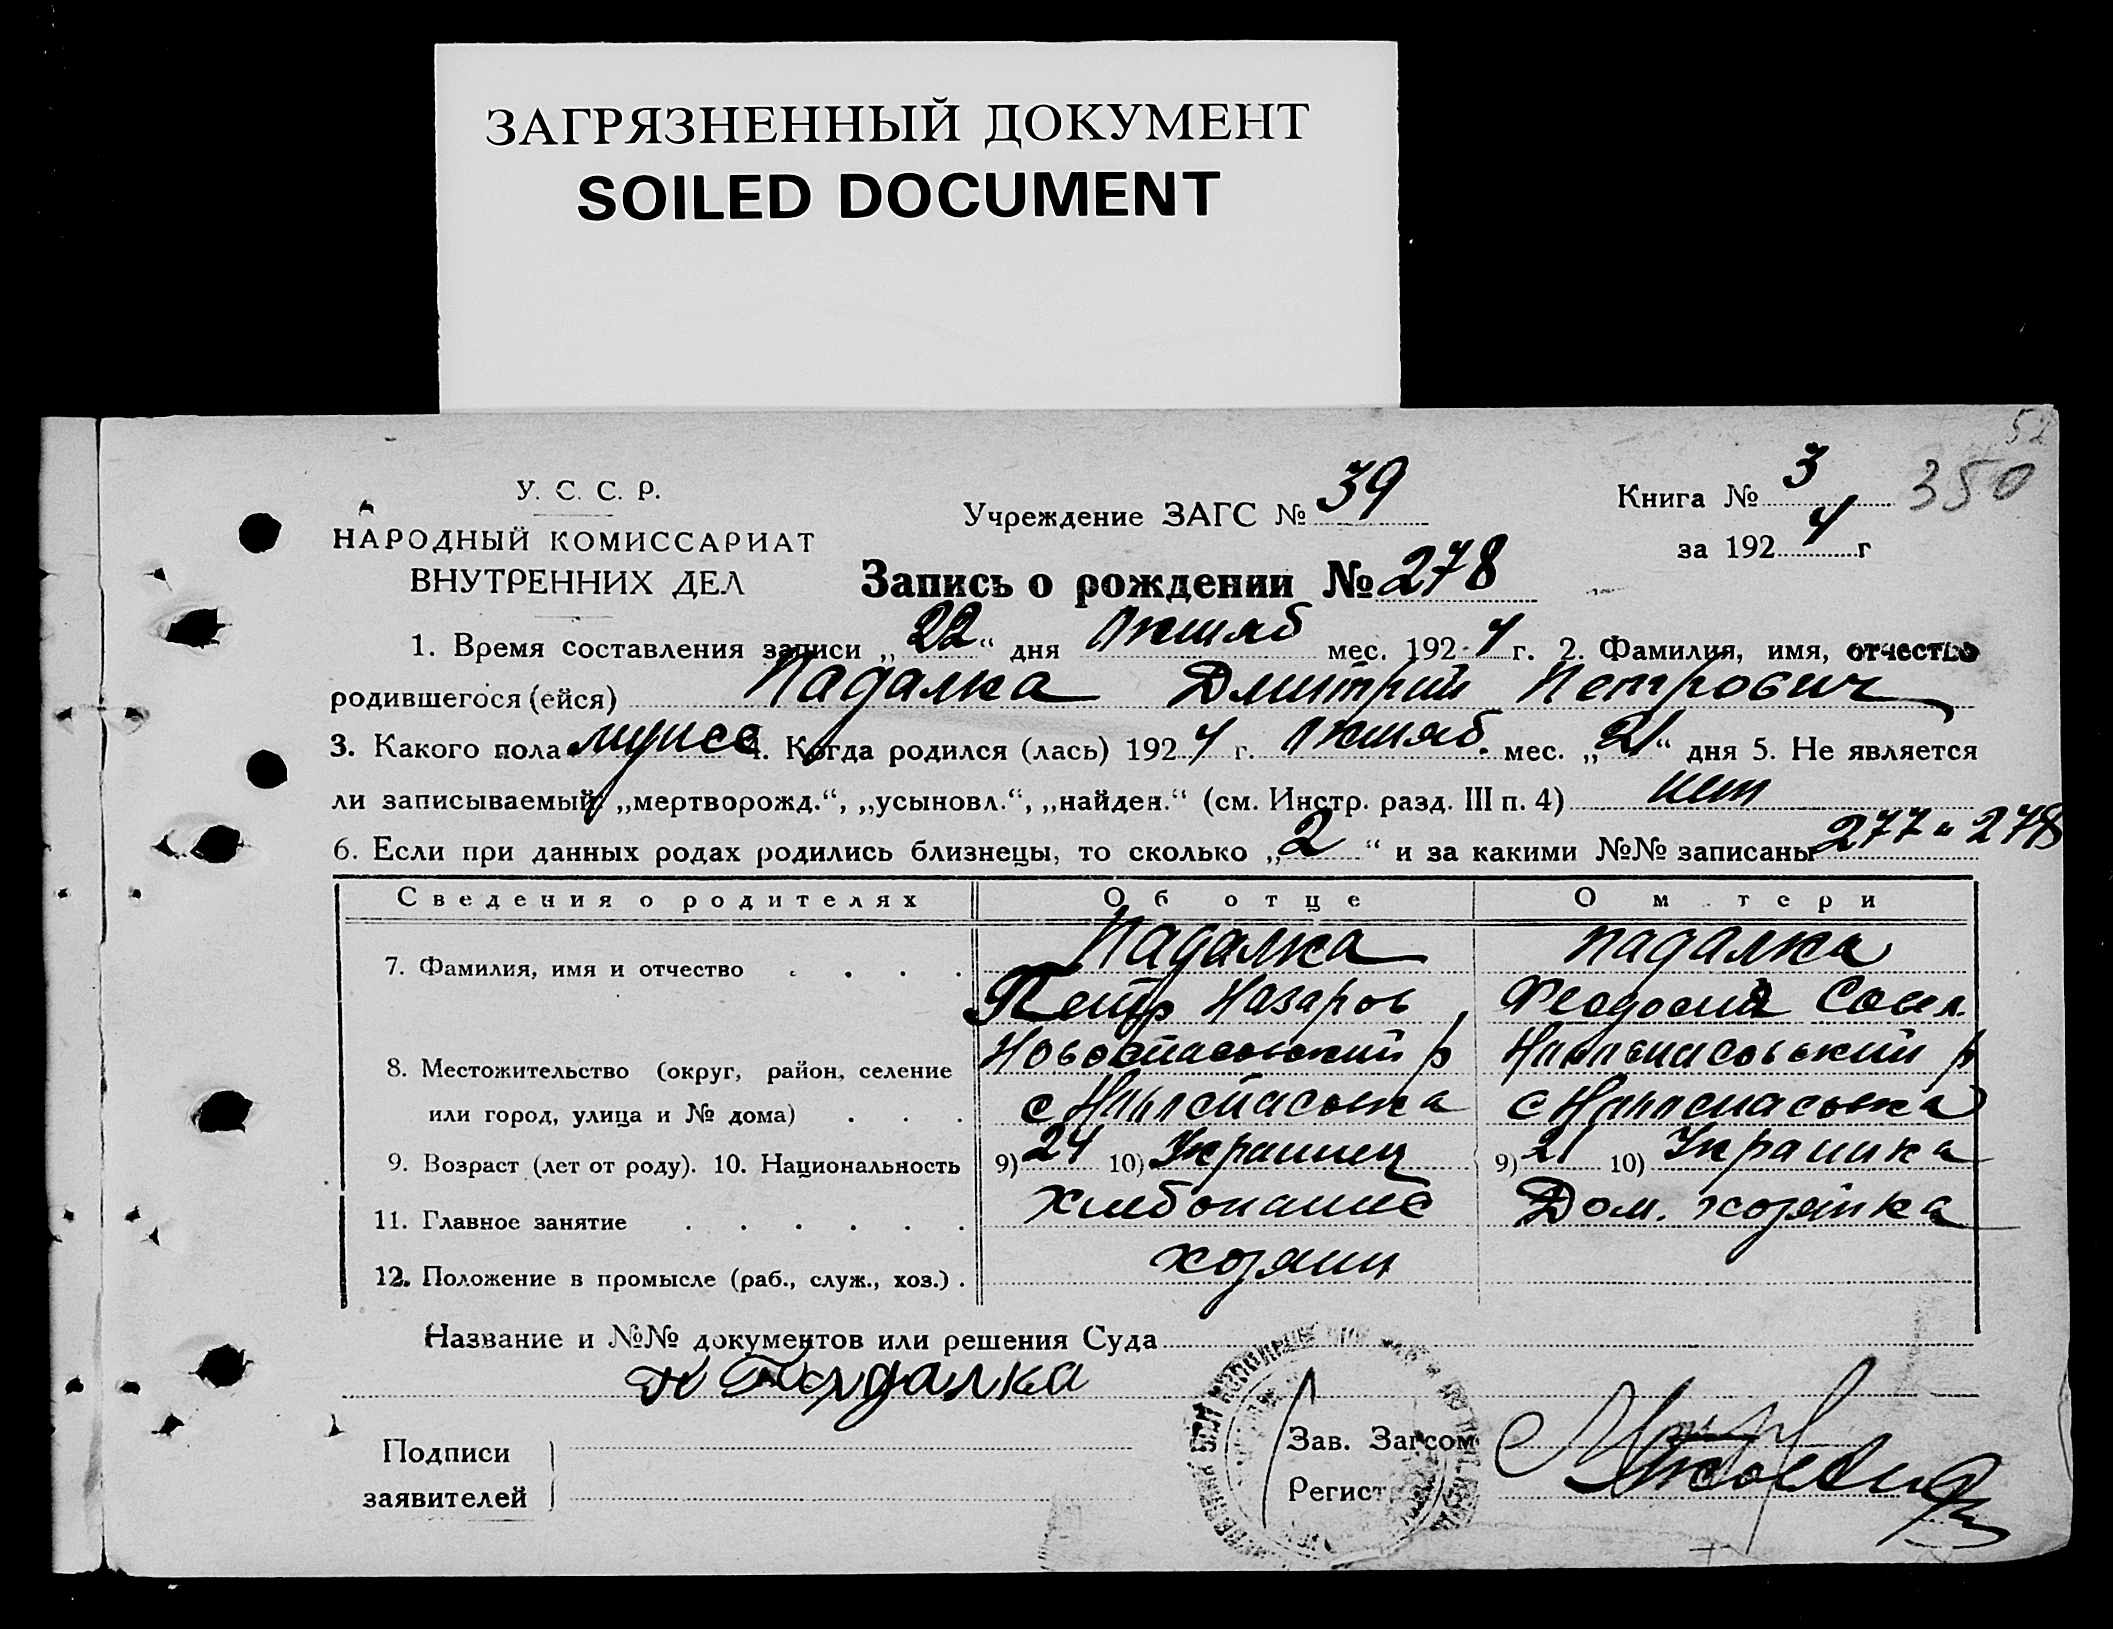 ЗАГРЯЗНЕННЫЙ ДОКУМЕНТ
SOILED DOCUMENT
52
350
У. С. С. Р.
НАРОДНЫЙ КОМИССАРИАТ
ВНУТРЕННИХ ДЕЛ
Учреждение ЗАГС № 39
Книга № 3
за 1924 г
Запись о рождении № 278
1. Время составления записи „22“ дня Октяб мес. 1924 г. 2. Фамилия, имя, отчество
родившегося (ейся) Падалка Дмитрий Петрович
3. Какого пола мужс 4. Когда родился (лась) 1924 г. Октяб. мес. „21“ дня 5. Не является
ли записываемый: „мертворожд.“, „усыновл.“, „найден.“ (см. Инстр. разд. III п. 4) нет
6. Если при данных родах родились близнецы, то сколько „2“ и за какими №№ записаны 277 и 278
Сведения о родителях Об отце О м.тери
7. Фамилия, имя и отчество . . . . Падалка Падалка
Петр Назаров Феодосия
8. Местожительство (округ, район, селение Новоспасовский р Новоспасовский р
или город, улица и № дома) . . . с Новоспасовка с Новоспасовка
9. Возраст (лет от роду). 10. Национальность 9) 24 10) Украинец 9) 21 10) Украинка
11. Главное занятие . . . . . . хлебопашес Дом. хозяйка
12. Положение в промысле (раб., служ., хоз.) . хозяин
Название и №№ документов или решения Суда
Падалка
Подписи
заявителей
Зав. Загсом
Регист